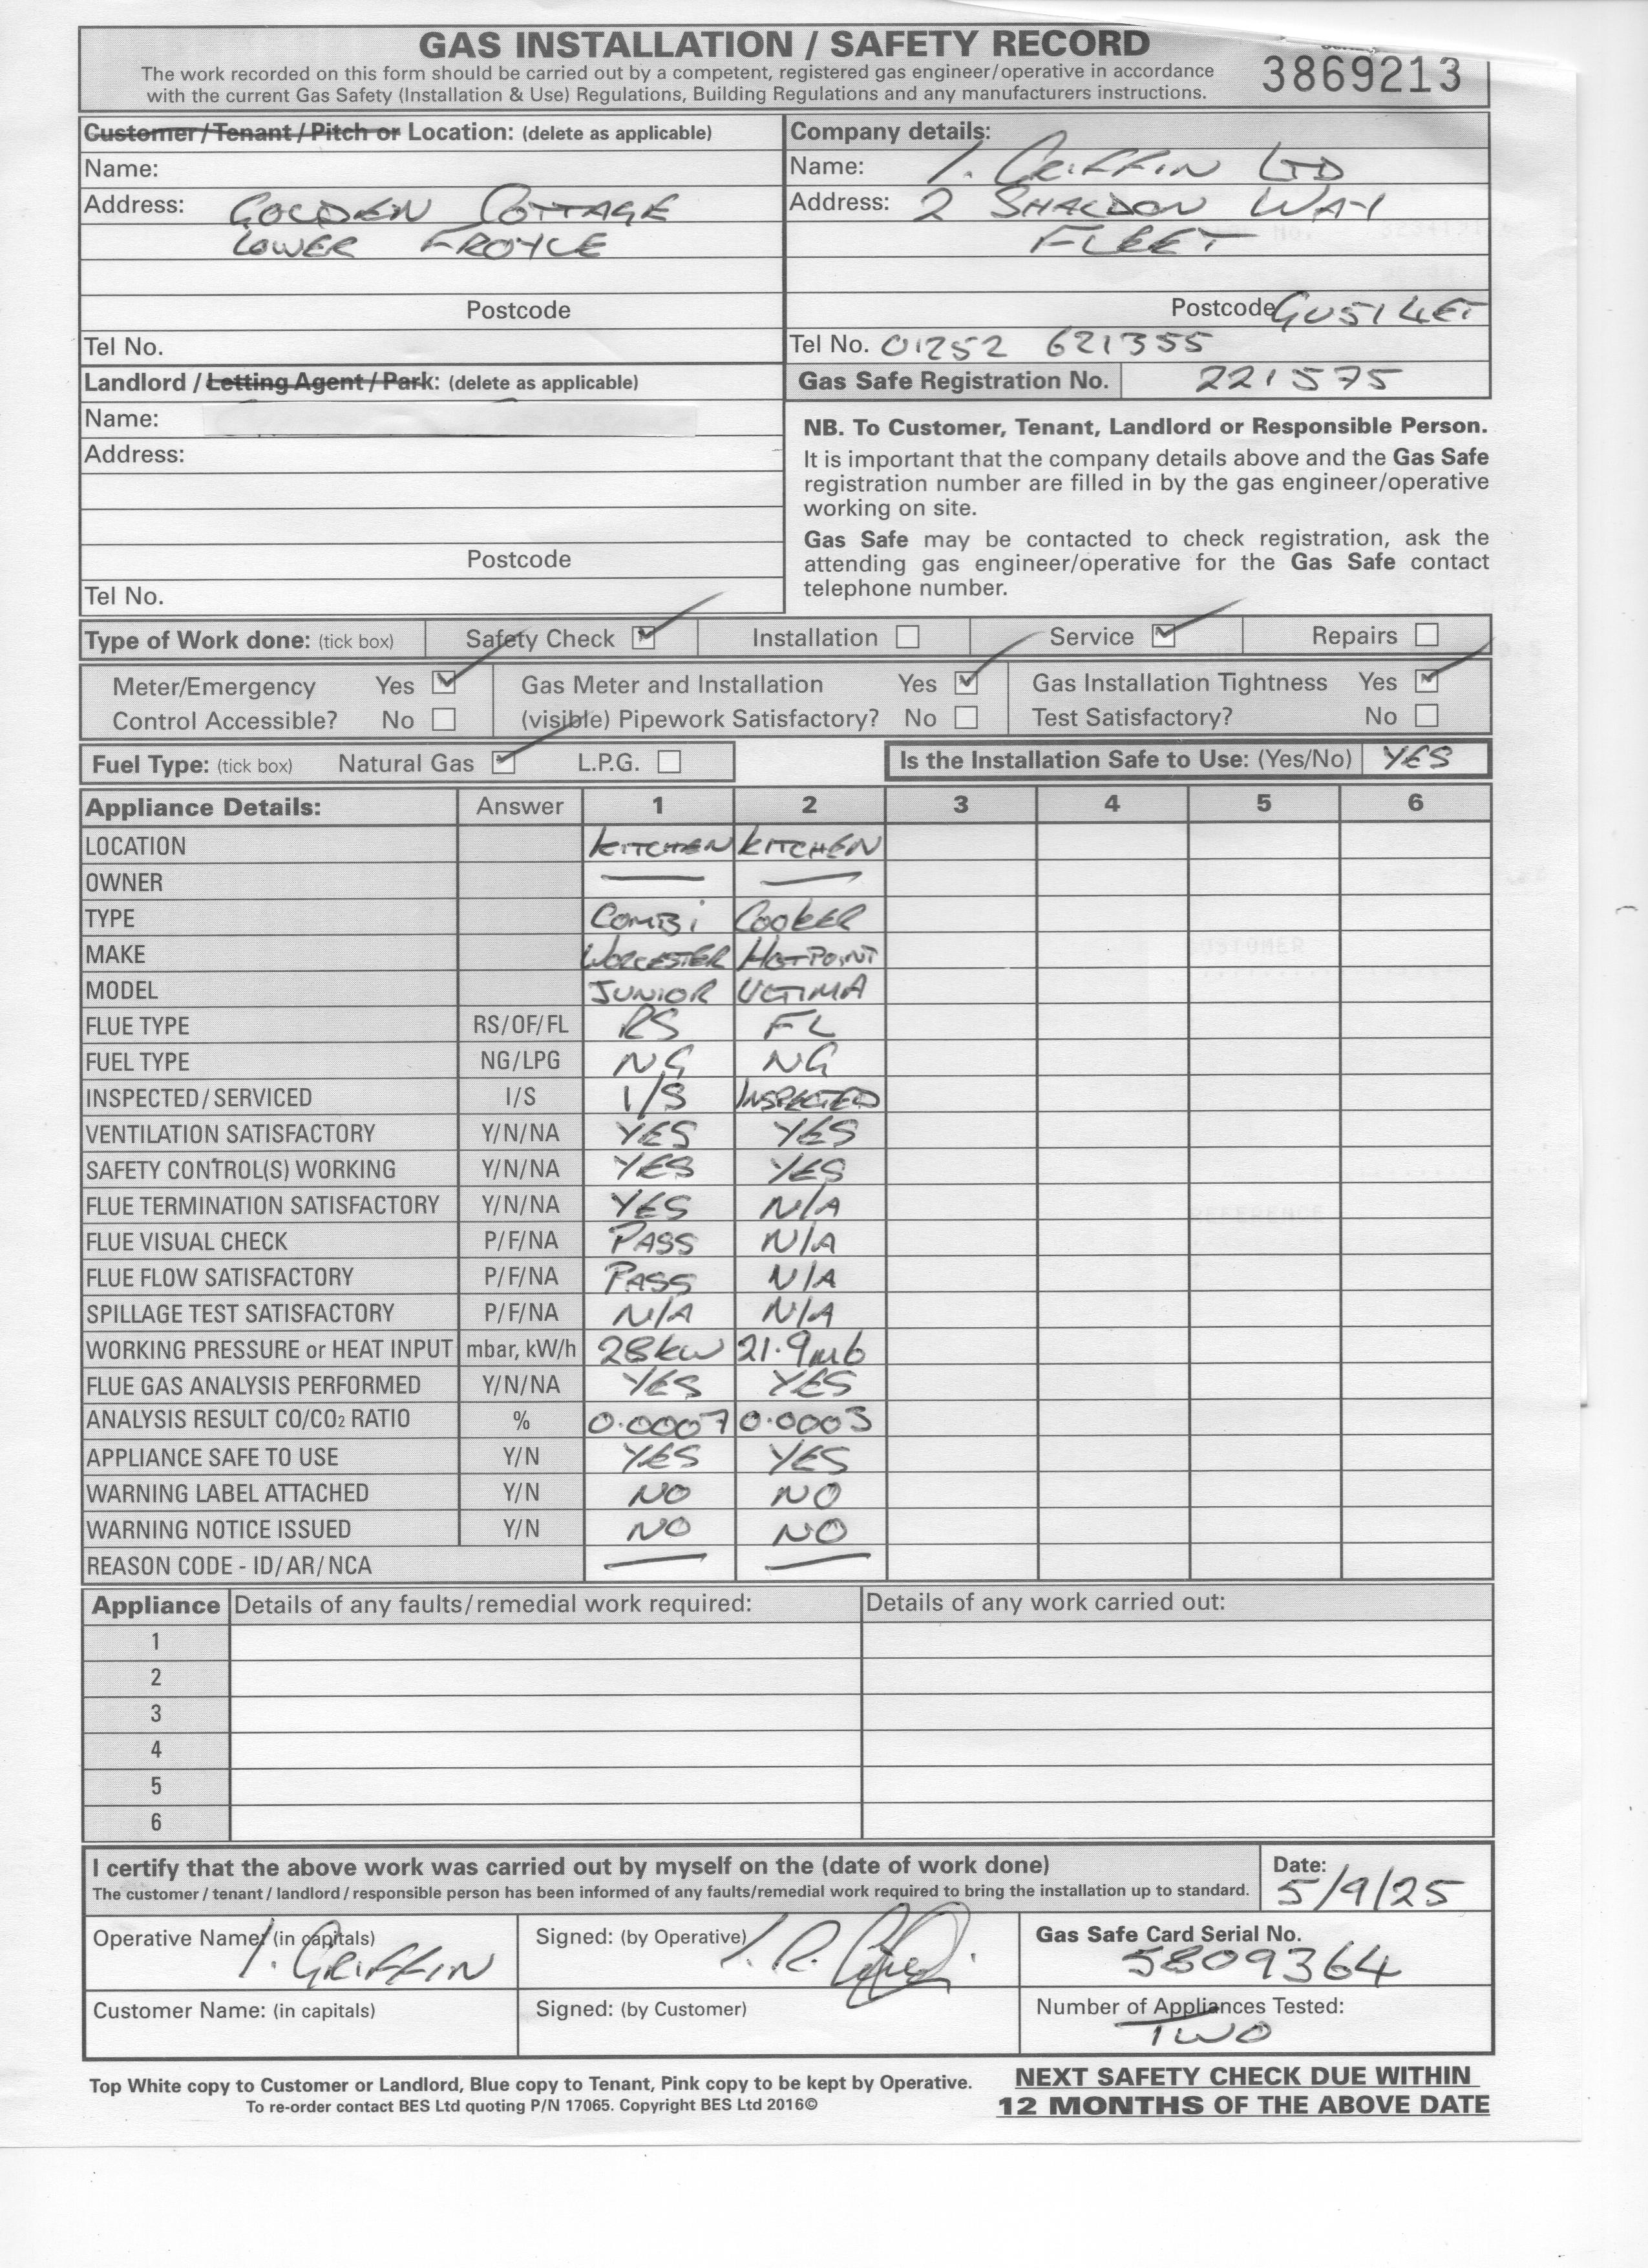 GAS INSTALLATION / SAFETY RECORD
The work recorded on this form should be carried out by a competent, registered gas engineer/operative in accordance
with the current Gas Safety (Installation & Use) Regulations, Building Regulations and any manufacturers instructions.
3869213
Customer/Tenant/Pitch or Location: (delete as applicable)
Name:
Address: GOLDEN COTTAGE
LOWER FROYLE
Postcode
Tel No.
Company details:
Name: I. GRIFFIN LTD
Address: 2 SHALDON WAY
FLEET
Postcode GU51 4ET
Tel No. 01252 621355
Gas Safe Registration No. 221575
Landlord / Letting Agent / Park: (delete as applicable)
Name:
Address:
Postcode
Tel No.
NB. To Customer, Tenant, Landlord or Responsible Person.
It is important that the company details above and the Gas Safe
registration number are filled in by the gas engineer/operative
working on site.
Gas Safe may be contacted to check registration, ask the
attending gas engineer/operative for the Gas Safe contact
telephone number.
Type of Work done: (tick box) Safety Check Installation Service Repairs
Meter/Emergency Yes Gas Meter and Installation Yes Gas Installation Tightness Yes
Control Accessible? No (visible) Pipework Satisfactory? No Test Satisfactory? No
Fuel Type: (tick box) Natural Gas L.P.G. Is the Installation Safe to Use: (Yes/No) YES
Appliance Details: Answer 1 2 3 4 5 6
LOCATION KITCHEN KITCHEN
OWNER
TYPE COMBI COOKER
MAKE WORCESTER HOTPOINT
MODEL JUNIOR ULTIMA
FLUE TYPE RS/OF/FL RS FL
FUEL TYPE NG/LPG NG NG
INSPECTED/SERVICED I/S I/S INSPECTED
VENTILATION SATISFACTORY Y/N/NA YES YES
SAFETY CONTROL(S) WORKING Y/N/NA YES YES
FLUE TERMINATION SATISFACTORY Y/N/NA YES N/A
FLUE VISUAL CHECK P/F/NA PASS N/A
FLUE FLOW SATISFACTORY P/F/NA PASS N/A
SPILLAGE TEST SATISFACTORY P/F/NA N/A N/A
WORKING PRESSURE or HEAT INPUT mbar, kW/h 28kW 21.9mb
FLUE GAS ANALYSIS PERFORMED Y/N/NA YES YES
ANALYSIS RESULT CO/CO2 RATIO % 0.0007 0.0003
APPLIANCE SAFE TO USE Y/N YES YES
WARNING LABEL ATTACHED Y/N NO NO
WARNING NOTICE ISSUED Y/N NO NO
REASON CODE - ID/AR/NCA
Appliance Details of any faults/remedial work required: Details of any work carried out:
1
2
3
4
5
6
I certify that the above work was carried out by myself on the (date of work done)
The customer / tenant / landlord / responsible person has been informed of any faults/remedial work required to bring the installation up to standard.
Date: 5/9/25
Operative Name: (in capitals) I. GRIFFIN
Signed: (by Operative)
Gas Safe Card Serial No. 5809364
Customer Name: (in capitals)
Signed: (by Customer)
Number of Appliances Tested: TWO
Top White copy to Customer or Landlord, Blue copy to Tenant, Pink copy to be kept by Operative.
To re-order contact BES Ltd quoting P/N 17065. Copyright BES Ltd 2016©
NEXT SAFETY CHECK DUE WITHIN
12 MONTHS OF THE ABOVE DATE